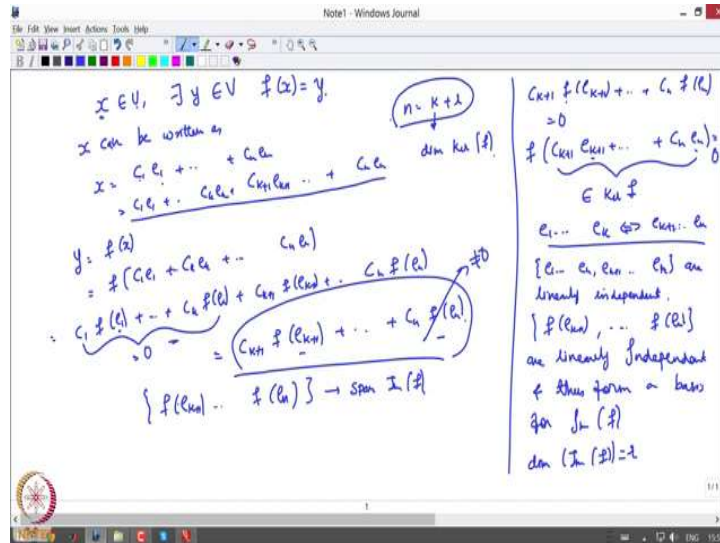 Note1 - Windows Journal
File Edit View Insert Actions Tools Help
x ∈ U, ∃ y ∈ V f(x) = y.
x can be written as
x = C1 e1 + .. + Cn en
= C1 e1 + .. Ck ek + Ck+1 ek+1 .. + Cn en
n = k + r
dim Ker (f).
y = f(x)
= f(C1 e1 + C2 e2 + .. Cn en)
= C1 f(e1) + .. + Ck f(ek) + Ck+1 f(ek+1) + .. Cn f(en)
= 0
= Ck+1 f(ek+1) + .. + Cn f(en).
≠0
{ f(ek+1) .. f(en) } → span Im(f)
Ck+1 f(ek+1) + .. + Cn f(en)
= 0
f(Ck+1 ek+1 + .. + Cn en) = 0
∈ Ker f
e1 ... ek ⇔ ek+1 .. en
{e1 .. ek, ek+1 .. en} are
linearly independent.
{ f(ek+1), ... f(en)}
are linearly Independent
& thus form a basis
for Im (f)
dim (Im (f)) = r
1/1
1
NPTEL
ENG